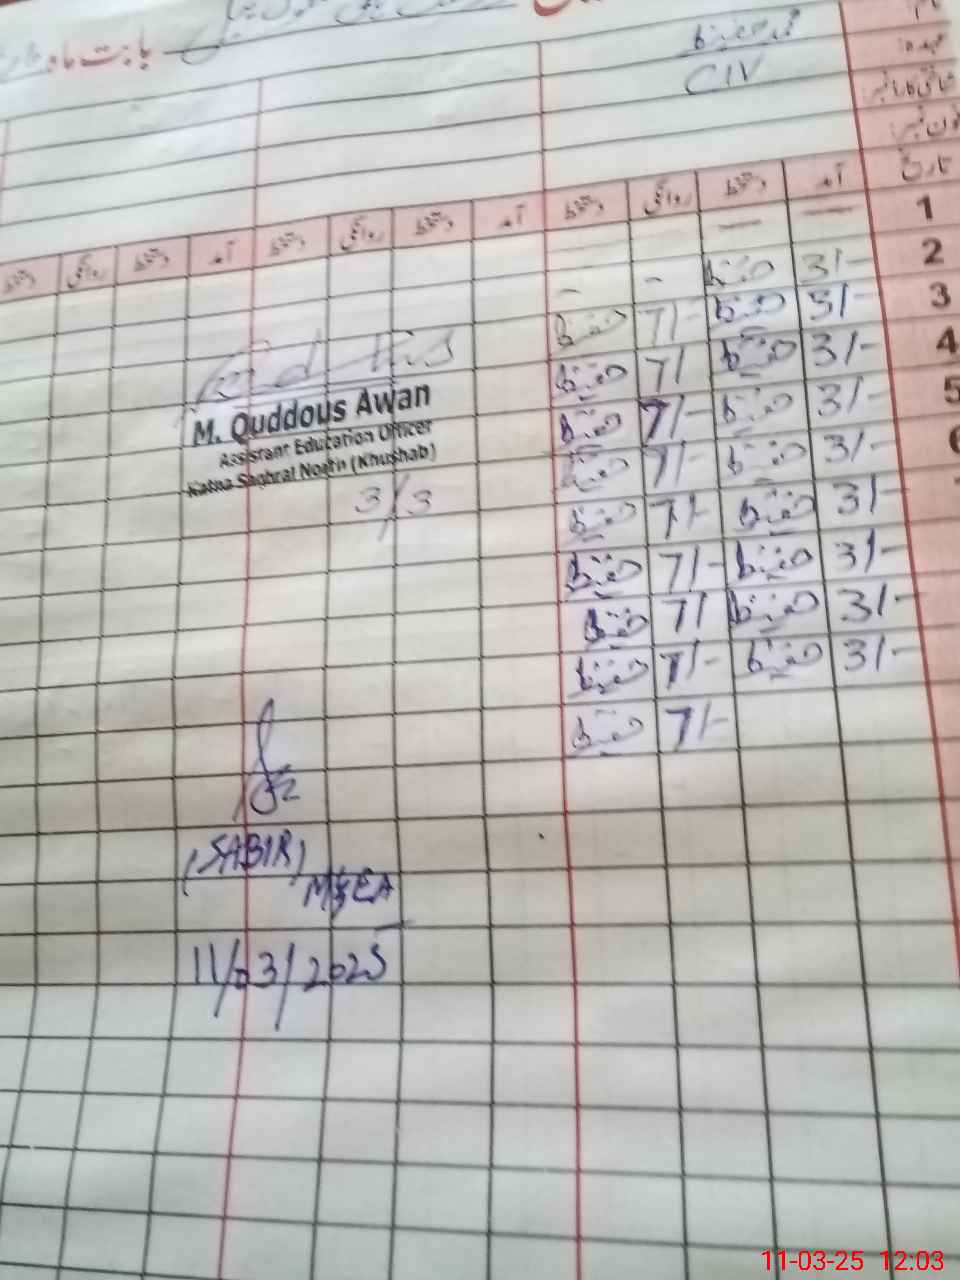 بابت ماہ
محمد حفیظ
CIV
نام
عہدہ
شناختی کارڈ نمبر
فون نمبر
تاریخ
آمد دستخط روانگی دستخط آمد دستخط روانگی دستخط آمد دستخط روانگی دستخط
1 — —
2 3/- حفیظ - -
3 3/- حفیظ 7/- حفیظ
4 3/- حفیظ 7/ حفیظ
5 3/- حفیظ 7/- حفیظ
6 3/- حفیظ 7/- حفیظ
3/- حفیظ 7/- حفیظ
3/- حفیظ 7/- حفیظ
3/- حفیظ 7/ حفیظ
3/- حفیظ 7/- حفیظ
7/- حفیظ
M. Quddous Awan
Assistant Education Officer
Katha Saghral North (Khushab)
3/3
(SABIR)
MEA
11/03/2025
11-03-25 12:03